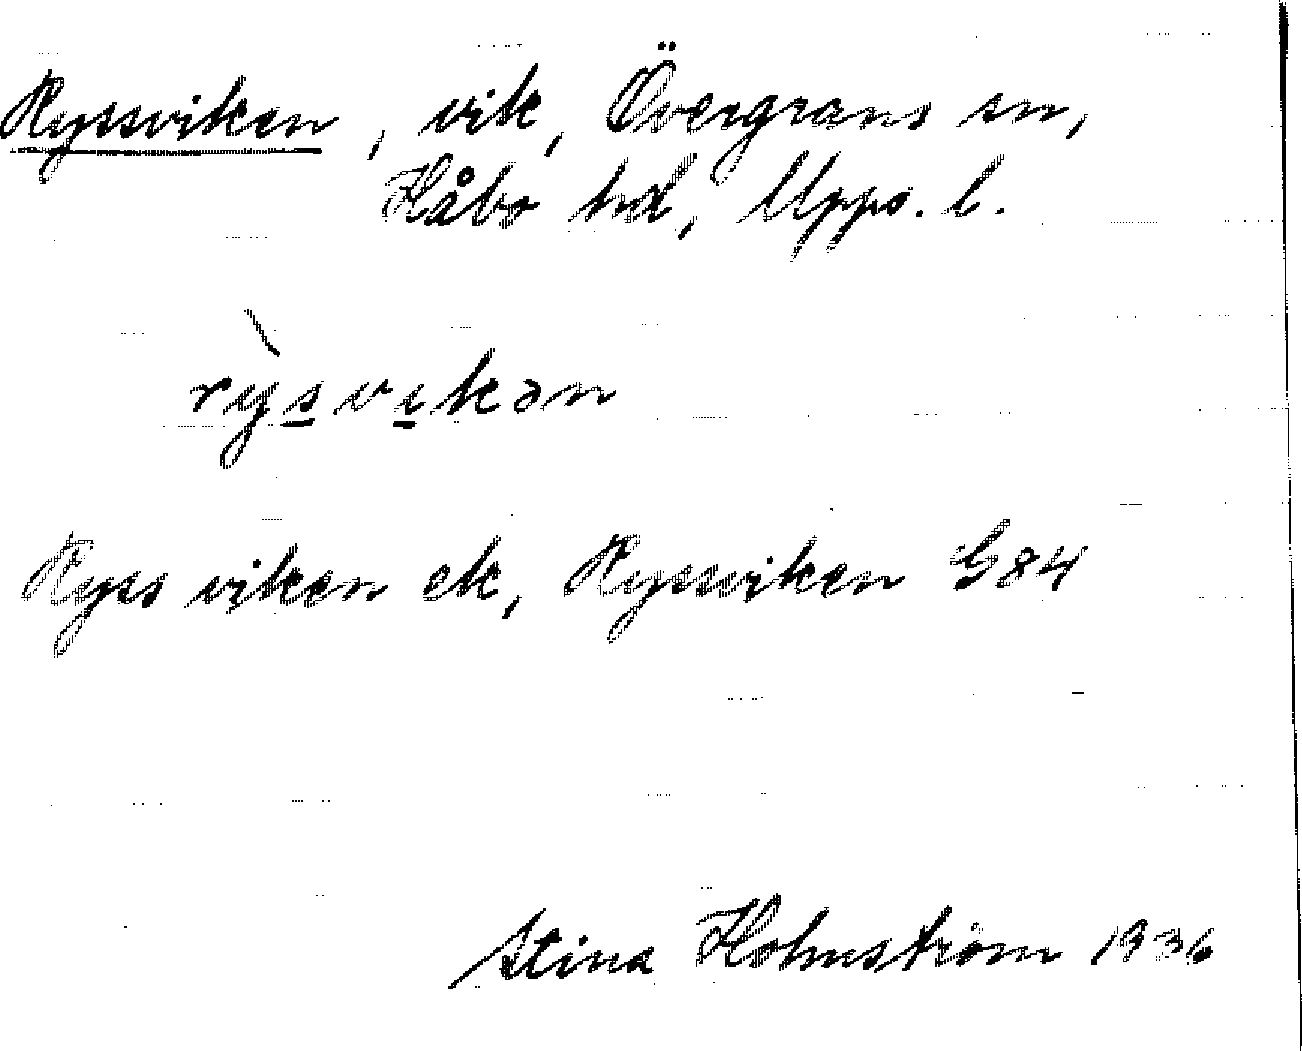 Ryssviken, vik, Övergrans sn,
Håbo hd, Upps. l.
rỳsvikən
Ryss viken ek, Ryssviken G84
Stina Holmström 1936